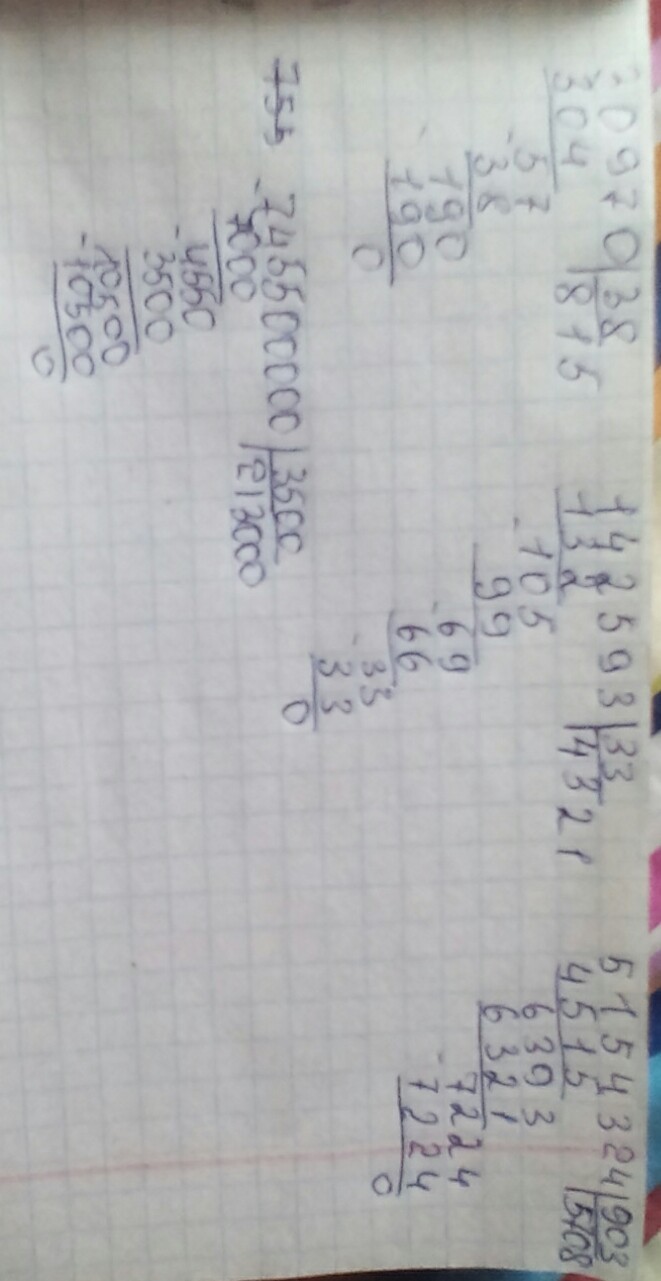 30970|38
304 815
-57
38
-190
190
0
142593|33
132 4321
-105
99
-69
66
-33
33
0
5154324|903
4515 5708
6393
6321
-7224
7224
0
-745500000|3500
7000 213000
-4550
3500
-10500
10500
0